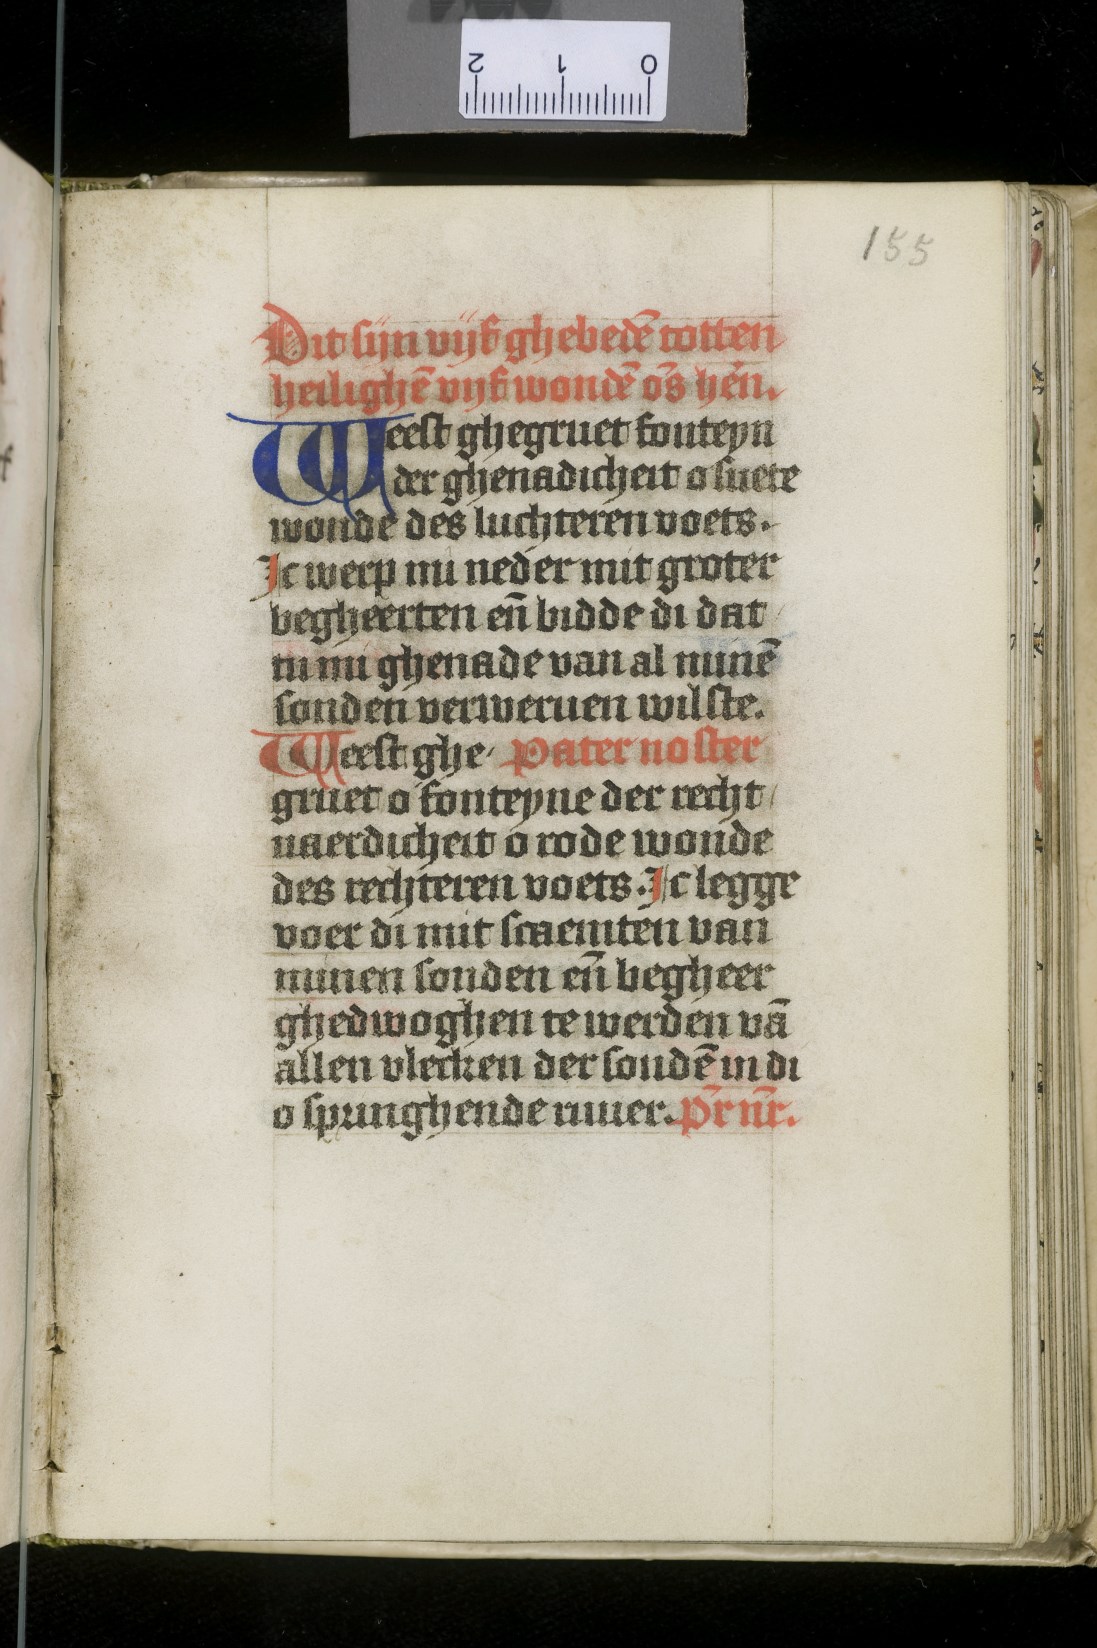 2 1 0
155
Dit sijn vijf ghebedē totten
heilighē vijf wondē ōs hēn.
Weest ghegruet fonteyn
der ghenadicheit o suete
wonde des luchteren voets.
Ic werp mi neder mit groter
begheerten eñ bidde di dat
tu mi ghenade van al minē
sonden verwerven wilste.
Weest ghe Pater noster
gruet o fonteyne der recht
uaerdicheit o rode wonde
des rechteren voets. Ic legge
voer di mit scaemten van
minen sonden eñ begheer
ghedwoghen te werden vā
allen vlecken der sondē in di
o springhende riuier. Pr̄ nr̄.